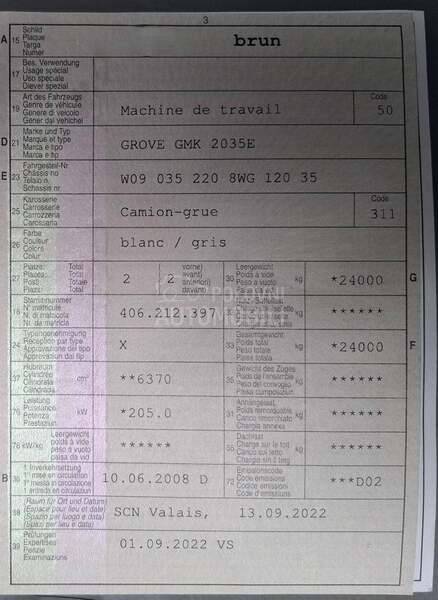 3
A 15 Schild
Plaque
Targa
Numer
brun
17 Bes. Verwendung
Usage spécial
Uso speciale
Diever spezial
19 Art des Fahrzeugs
Genre de véhicule
Genere di veicolo
Gener dal vehichel
Machine de travail
Code
50
D 21 Marke und Typ
Marque et type
Marca e tipo
Marca e tip
GROVE GMK 2035E
E 23 Fahrgestell-Nr.
Châssis no
Telaio n.
Schassis nr.
W09 035 220 8WG 120 35
25 Karosserie
Carrosserie
Carrozzeria
Carossaria
Camion-grue
Code
311
26 Farbe
Couleur
Colore
Colur
blanc / gris
27 Plätze: Total
Places: Total
Posti: Totale
Plazs: Total
2
2
vorne)
avant)
anteriori)
davant)
30 Leergewicht
Poids à vide
Peso a vuoto
kg
*24000
G
18 Stammnummer
N° matricule
N. di matricola
Nr. da matricla
406.212.397
kg
******
24 Typengenehmigung
Réception par type
Approvazione del tipo
Approvaziun dal tip
X
33 Gesamtgewicht
Poids total
Peso totale
Paisa totala
kg
*24000
F
37 Hubraum
Cylindrée
Cilindrata
Cilindrada
cm³
**6370
35 Gewicht des Zuges
Poids de l'ensemble
Peso del convoglio
Paisa cumposiziun
kg
******
76 Leistung
Puissance
Potenza
Prestaziun
kW
*205.0
31 Anhängelast
Poids remorquable
Carico rimorchiato
Chargia annexa
kg
******
78 kW/kg
Leergewicht
poids à vide
peso a vuoto
paisa da vid
******
55 Dachlast
Charge sur le toit
Carico sul tetto
Chargia sin il tetg
kg
******
B 36 1. Inverkehrsetzung
1re mise en circulation
1a messa in circolazione
1. entrada en circulaziun
10.06.2008 D
72 Emissionscode
Code émissions
Codice emissioni
Code d'emissiuns
***D02
38 (Raum für Ort und Datum)
(Espace pour lieu et date)
(Spazio per luogo e data)
(Spazi per lieu e data)
SCN Valais, 13.09.2022
39 Prüfungen
Expertises
Perizie
Examinaziuns
01.09.2022 VS